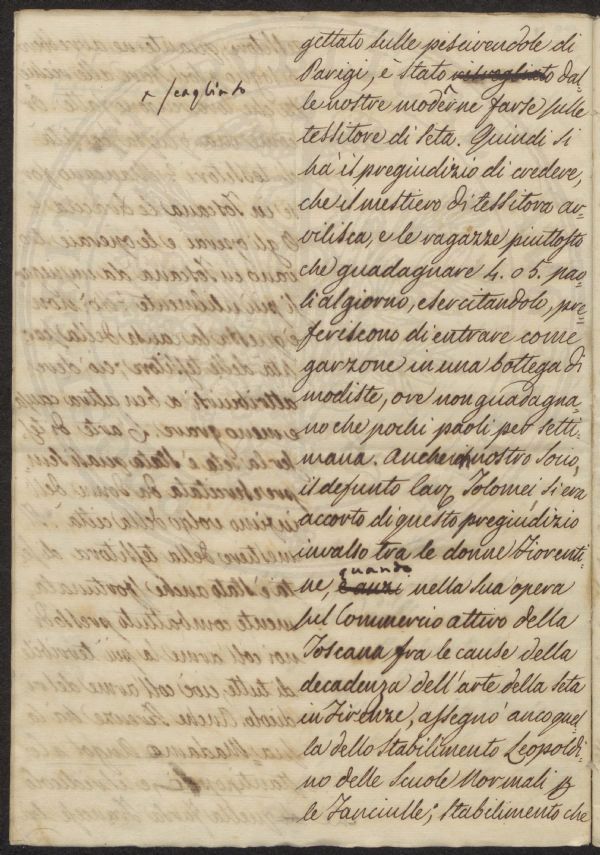 gettato sulle pescivendole di
Parigi, è stato risvegliato dal=
scagliato
le nostre moderne farse sulle
tessitore di Seta. Quindi si
ha il pregiudizio di credere,
che il mestiero di tessitora av=
vilisca, e le ragazze piuttosto
che guadagnare 4. o 5. pao=
li al giorno, esercitandolo, pre=
feriscono di entrare come
garzone in una bottega di
modiste, ove non guadagna=
no che pochi paoli per setti=
mana. Anche il nostro Socio,
il defunto Cav. Tolomei si era
accorto di questo pregiudizio
invalso tra le donne Fiorenti=
quando
ne, e anzi nella sua opera
sul Commercio attivo della
Toscana fra le cause della
decadenza dell'arte della Seta
in Firenze, assegnò anco quel=
la dello Stabilimento Leopoldi=
no delle Scuole Normali p
le Fanciulle; Stabilimento che